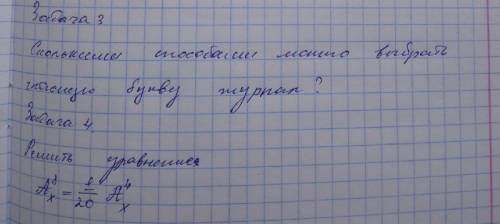 Задача 3
Сколькими способами можно выбрать
гласную букву журнал?
Задача 4.
Решить уравнение
A_x^3 = 1/20 A_x^4